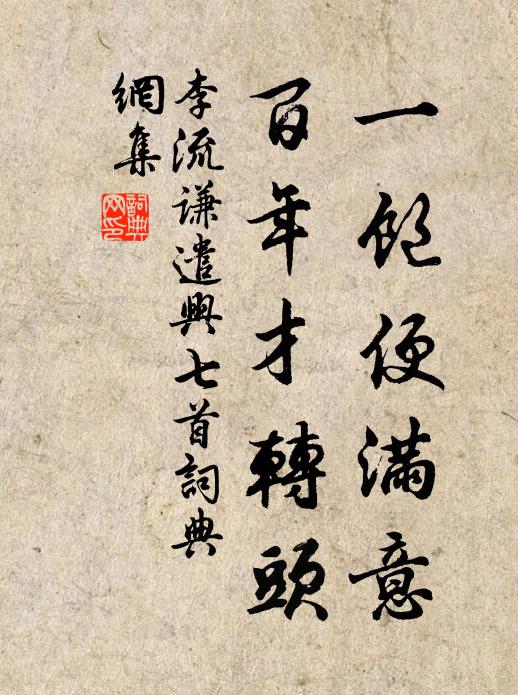 一飽便滿意
百年才轉頭
李流謙遣興七首詞典
網集
詞典
网印